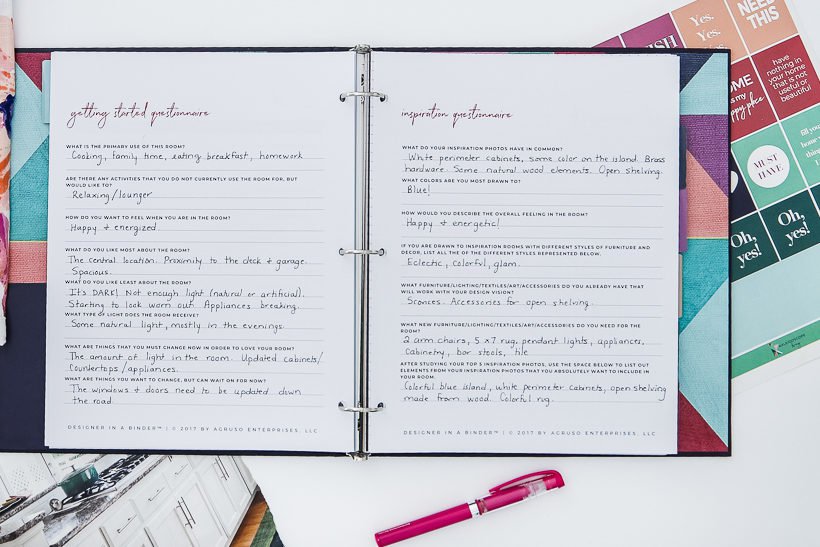 getting started questionnaire
WHAT IS THE PRIMARY USE OF THIS ROOM?
Cooking, family time, eating breakfast, homework
ARE THERE ANY ACTIVITIES THAT YOU DO NOT CURRENTLY USE THE ROOM FOR, BUT
WOULD LIKE TO?
Relaxing/lounger
HOW DO YOU WANT TO FEEL WHEN YOU ARE IN THE ROOM?
Happy & energized
WHAT DO YOU LIKE MOST ABOUT THE ROOM?
The central location. Proximity to the deck & garage.
Spacious.
WHAT DO YOU LIKE LEAST ABOUT THE ROOM?
It's DARK! Not enough light (natural or artificial).
Starting to look worn out. Appliances breaking.
WHAT TYPE OF LIGHT DOES THE ROOM RECEIVE?
Some natural light, mostly in the evenings.
WHAT ARE THINGS THAT YOU MUST CHANGE NOW IN ORDER TO LOVE YOUR ROOM?
The amount of light in the room. Updated cabinets/
Countertops/appliances.
WHAT ARE THINGS YOU WANT TO CHANGE, BUT CAN WAIT ON FOR NOW?
The windows & doors need to be updated down
the road.
DESIGNER IN A BINDER™ | © 2017 BY AGRUSO ENTERPRISES, LLC
inspiration questionnaire
WHAT DO YOUR INSPIRATION PHOTOS HAVE IN COMMON?
White perimeter cabinets, some color on the island. Brass
hardware. Some natural wood elements. Open shelving.
WHAT COLORS ARE YOU MOST DRAWN TO?
Blue!
HOW WOULD YOU DESCRIBE THE OVERALL FEELING IN THE ROOM?
Happy & energetic!
IF YOU ARE DRAWN TO INSPIRATION ROOMS WITH DIFFERENT STYLES OF FURNITURE AND
DECOR, LIST ALL OF THE DIFFERENT STYLES REPRESENTED BELOW.
Eclectic, colorful, glam.
WHAT FURNITURE/LIGHTING/TEXTILES/ART/ACCESSORIES DO YOU ALREADY HAVE THAT
WILL WORK WITH YOUR DESIGN VISION?
Sconces. Accessories for open shelving.
WHAT NEW FURNITURE/LIGHTING/TEXTILES/ART/ACCESSORIES DO YOU NEED FOR THE
ROOM?
2 arm chairs, 5 x 7 rug, pendant lights, appliances,
Cabinetry, bar stools, tile
AFTER STUDYING YOUR TOP 5 INSPIRATION PHOTOS, USE THE SPACE BELOW TO LIST OUT
ELEMENTS FROM YOUR INSPIRATION PHOTOS THAT YOU ABSOLUTELY WANT TO INCLUDE IN
YOUR ROOM.
Colorful blue island, white perimeter cabinets, open shelving
made from wood. Colorful rug.
DESIGNER IN A BINDER™ | © 2017 BY AGRUSO ENTERPRISES, LLC
Yes.
Yes.
Yes.
NEED
THIS
HOME
my
happy place
have
nothing in
your home
that is not
useful or
beautiful!
MUST
HAVE
fill your
home
Oh,
yes!
Oh,
yes!